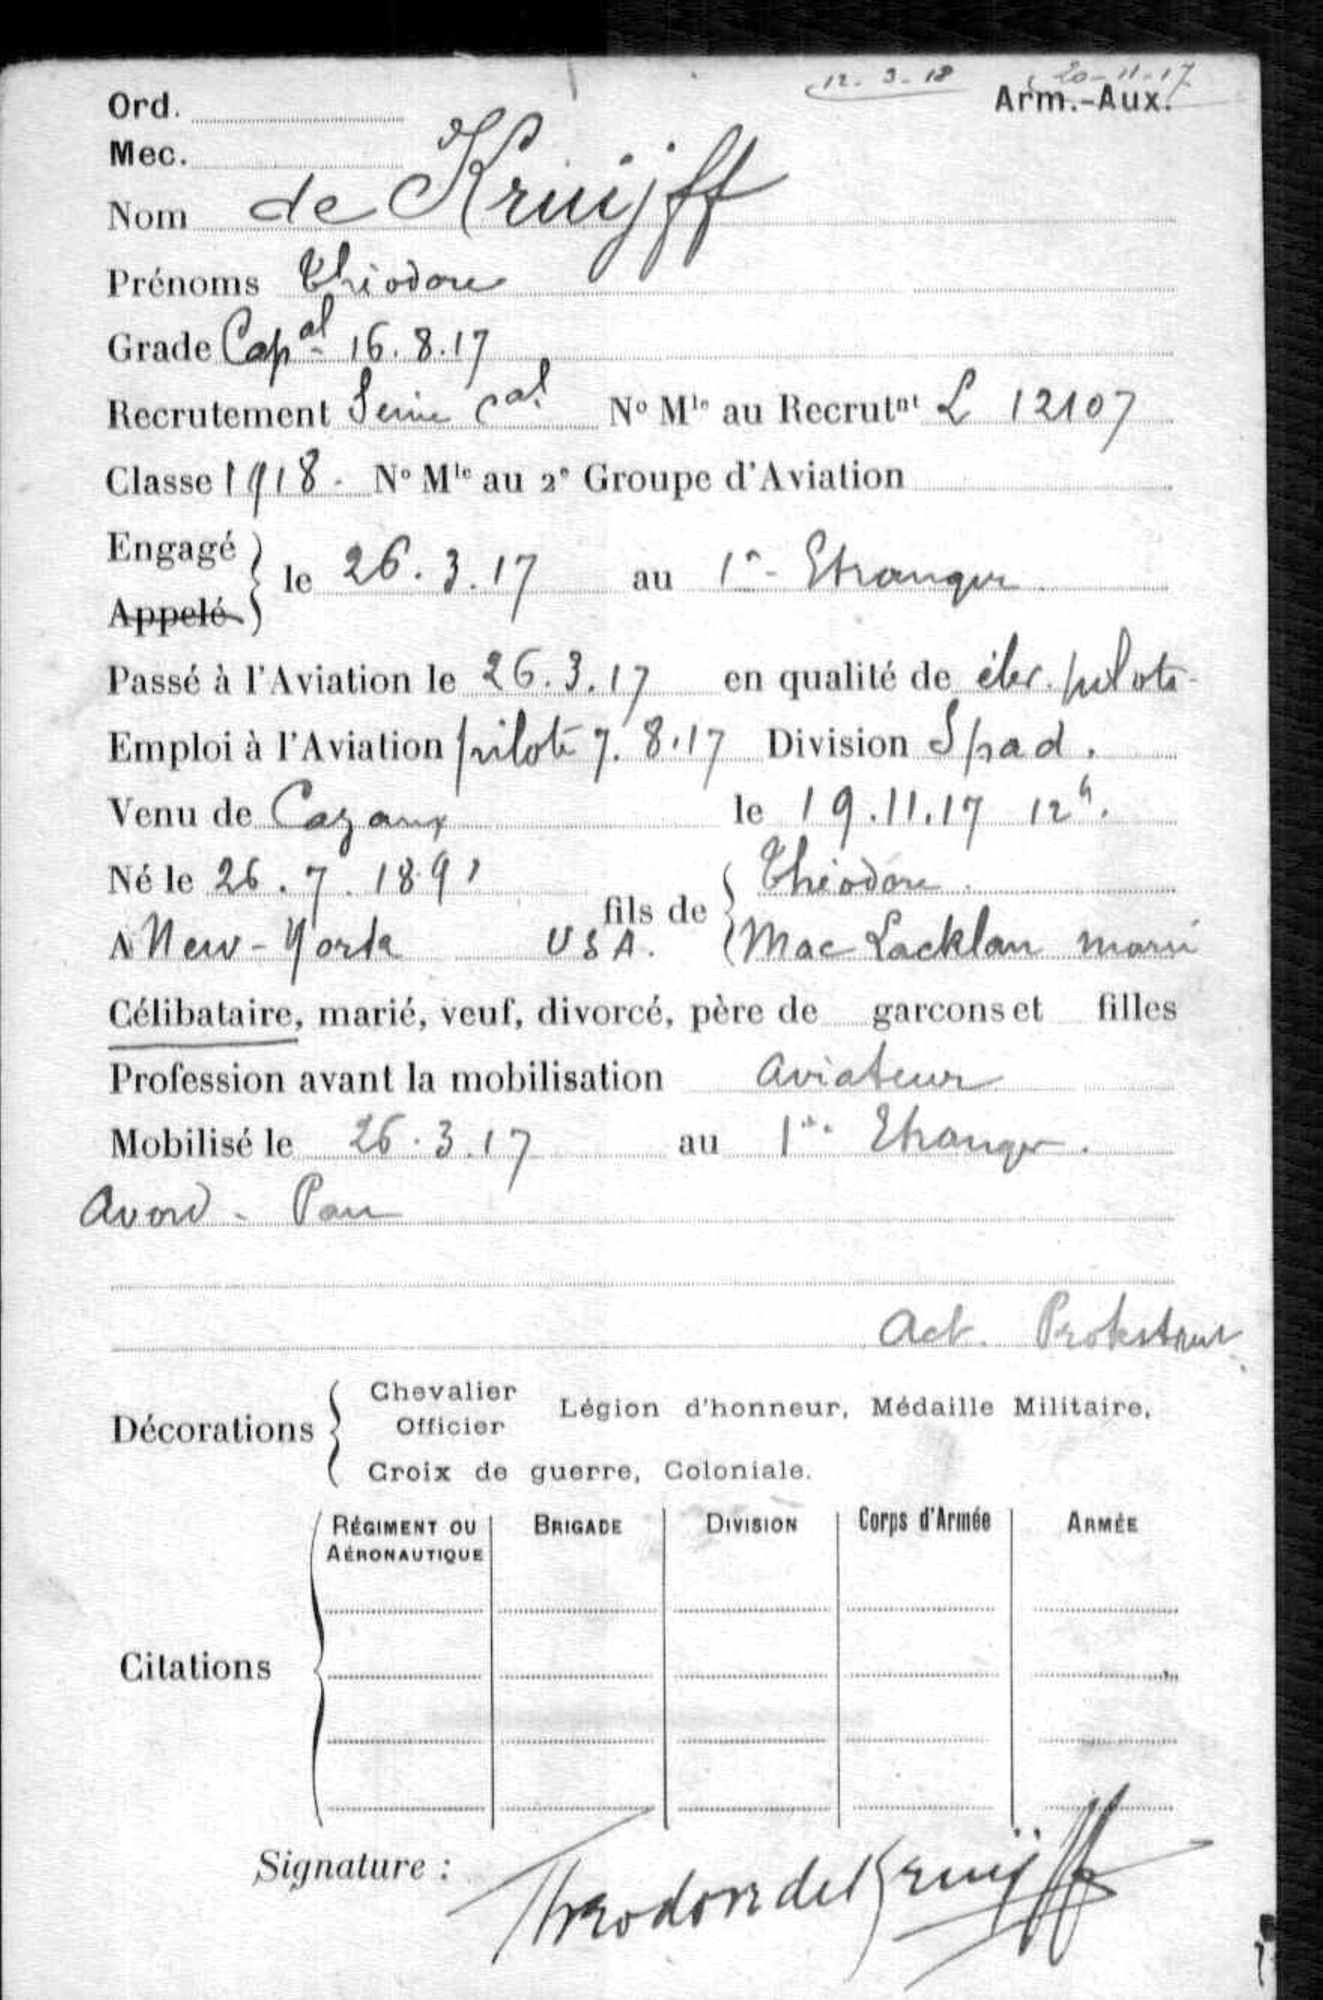 12-3-18 20-11-17
Ord. Arm.-Aux.
Mec.
Nom de Kruijff
Prénoms Théodore
Grade Cap al 16.8.17
Recrutement Seine Cal No Mle au Recrutnt L 12107
Classe 1918. No Mle au 2e Groupe d'Aviation
Engagé
Appelé
le 26.3.17 au 1er Etranger
Passé à l'Aviation le 26.3.17 en qualité de élev. pilote
Emploi à l'Aviation pilote 7.8.17 Division Spad.
Venu de Cazaux le 19.11.17 12h.
Né le 26.7.1891 fils de Théodore
A New-York USA. Mac Lacklan marie
Célibataire, marié, veuf, divorcé, père de garcons et filles
Profession avant la mobilisation aviateur
Mobilisé le 26.3.17 au 1er Etranger.
Avord - Pau
Act. Protestant
Décorations Chevalier Officier Légion d'honneur, Médaille Militaire,
Croix de guerre, Coloniale.
RÉGIMENT OU AÉRONAUTIQUE BRIGADE DIVISION Corps d'Armée ARMÉE
Citations
Signature : Theodore de Kruijff